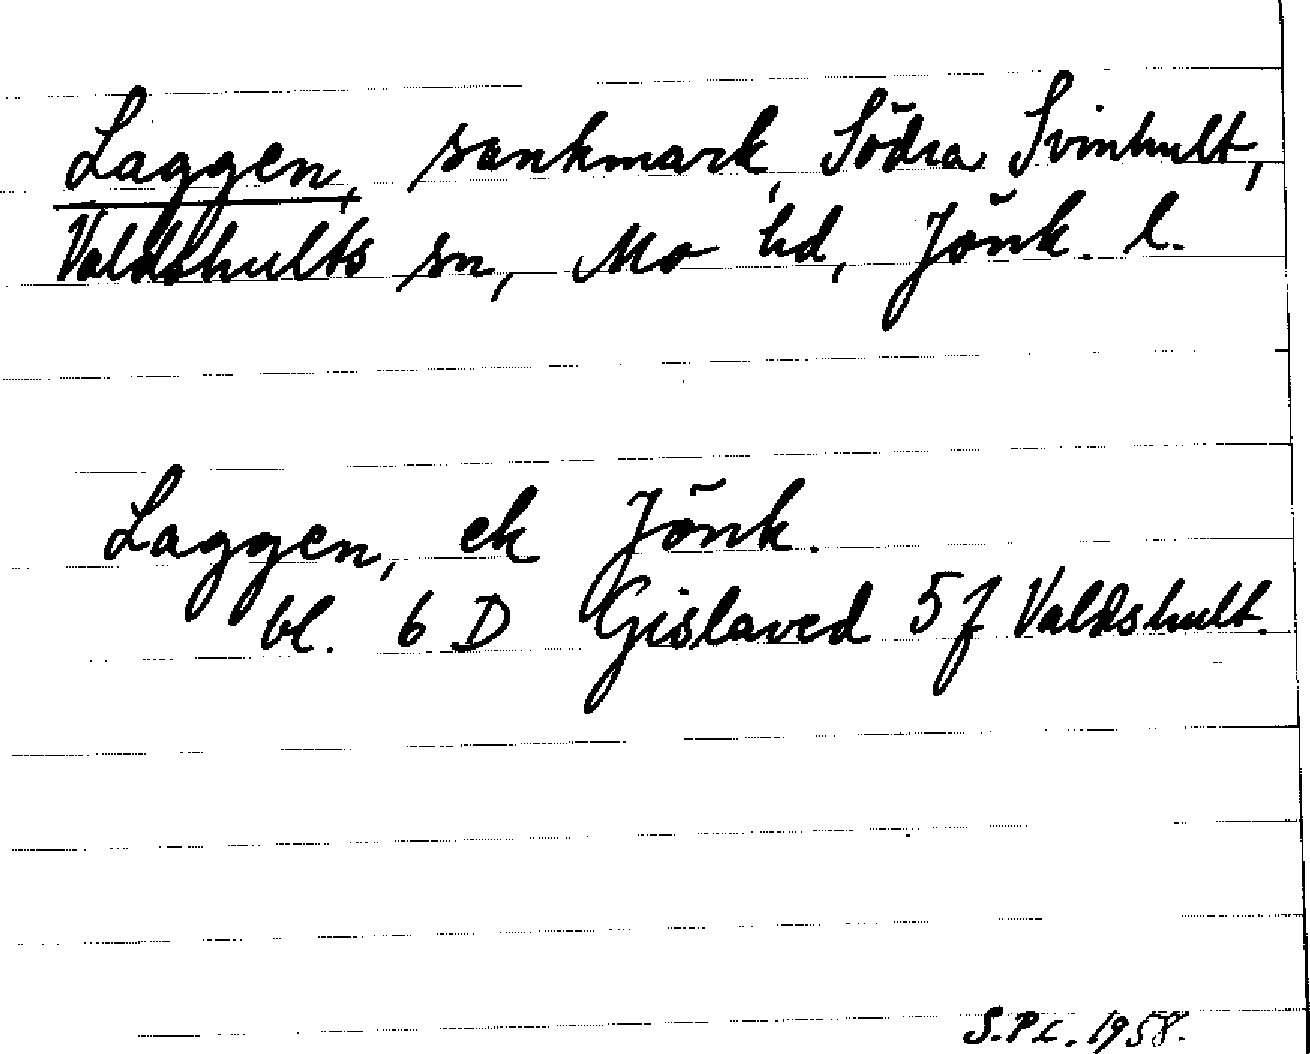 Laggen, sankmark, Södra Svinhult,
Valdshults sn, Mo hd, Jönk. l.
Laggen, ek Jönk.
bl. 6 D Gislaved 5f Valdshult.
S.P.L. 1958.